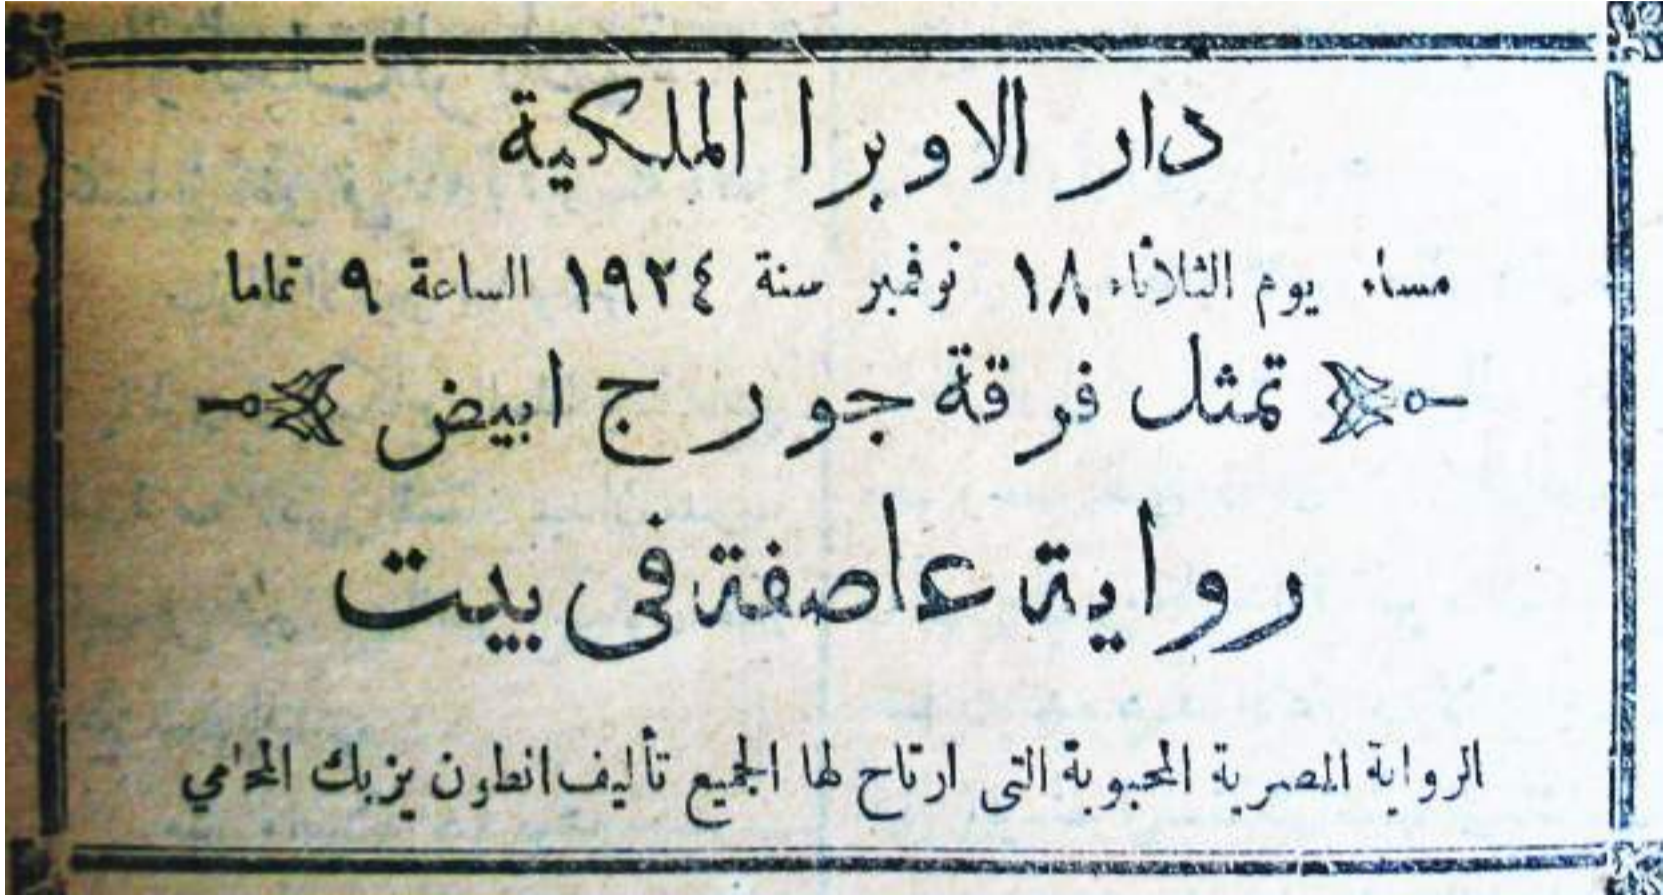 دار الاوبرا الملكية
مساء يوم الثلاثاء ١٨ نوفمبر سنة ١٩٢٤ الساعة ٩ تماما
تمثل فرقة جورج ابيض
رواية عاصفة فى بيت
الرواية المصرية المحبوبة التى ارتاح لها الجميع تأليف انطون يزبك المحامي